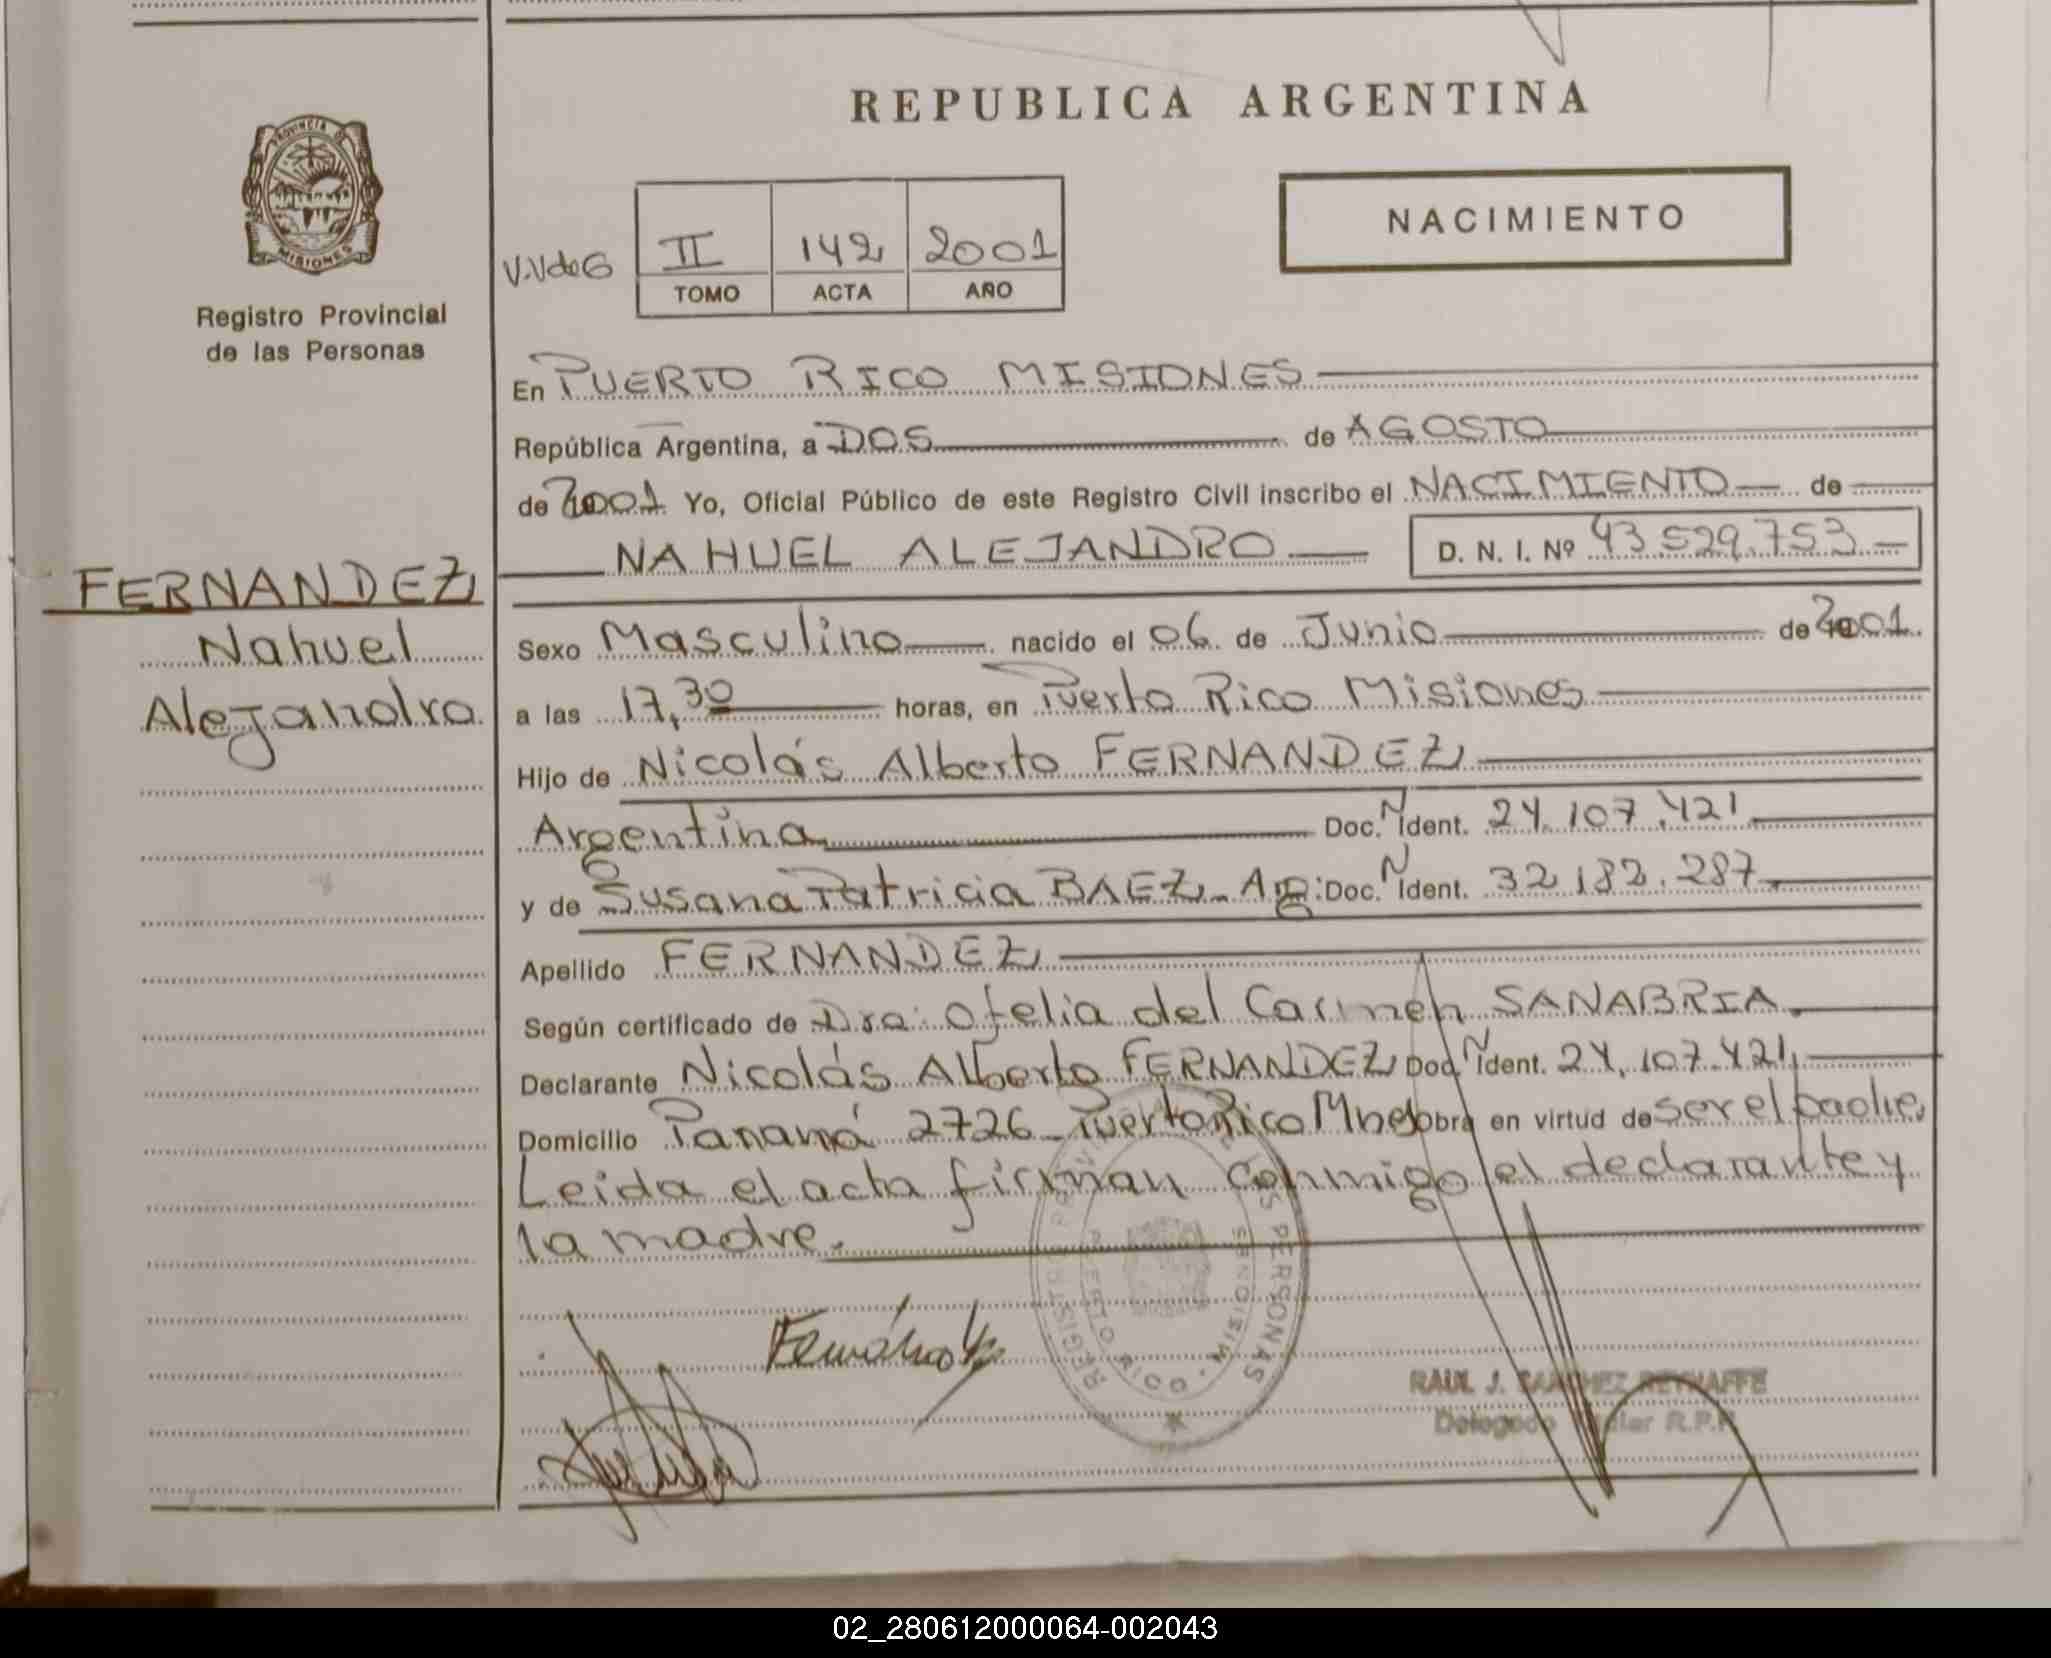 REPUBLICA ARGENTINA
PROVINCIA DE
MISIONES
Registro Provincial
de las Personas
NACIMIENTO
V.V de G
II 142 2001
TOMO ACTA AÑO
En PUERTO RICO MISIONES
República Argentina, a DOS de AGOSTO
de 2001 Yo, Oficial Público de este Registro Civil inscribo el NACIMIENTO de
NAHUEL ALEJANDRO D. N. I. Nº 43.529.753
FERNANDEZ
Nahuel
Alejandro
Sexo Masculino nacido el 06 de Junio de 2001
a las 17,30 horas, en Puerto Rico Misiones
Hijo de Nicolás Alberto FERNANDEZ
Argentina Doc. N Ident. 24.107.421
y de Susana Patricia BAEZ - Arg: Doc. N Ident. 32.182.287
Apellido FERNANDEZ
Según certificado de Dra: Ofelia del Carmen SANABRIA
Declarante Nicolás Alberto FERNANDEZ Doc. N Ident. 24.107.421
Domicilio Panamá 2726 Puerto Rico Mnes Obra en virtud de ser el padre
Leida el acta firman conmigo el declarante y
la madre.
REGISTRO PROVINCIAL DE LAS PERSONAS
PUERTO RICO - MISIONES
RAUL J. SANCHEZ REYNAFFE
Delegado Titular R.P.P.
02_280612000064-002043